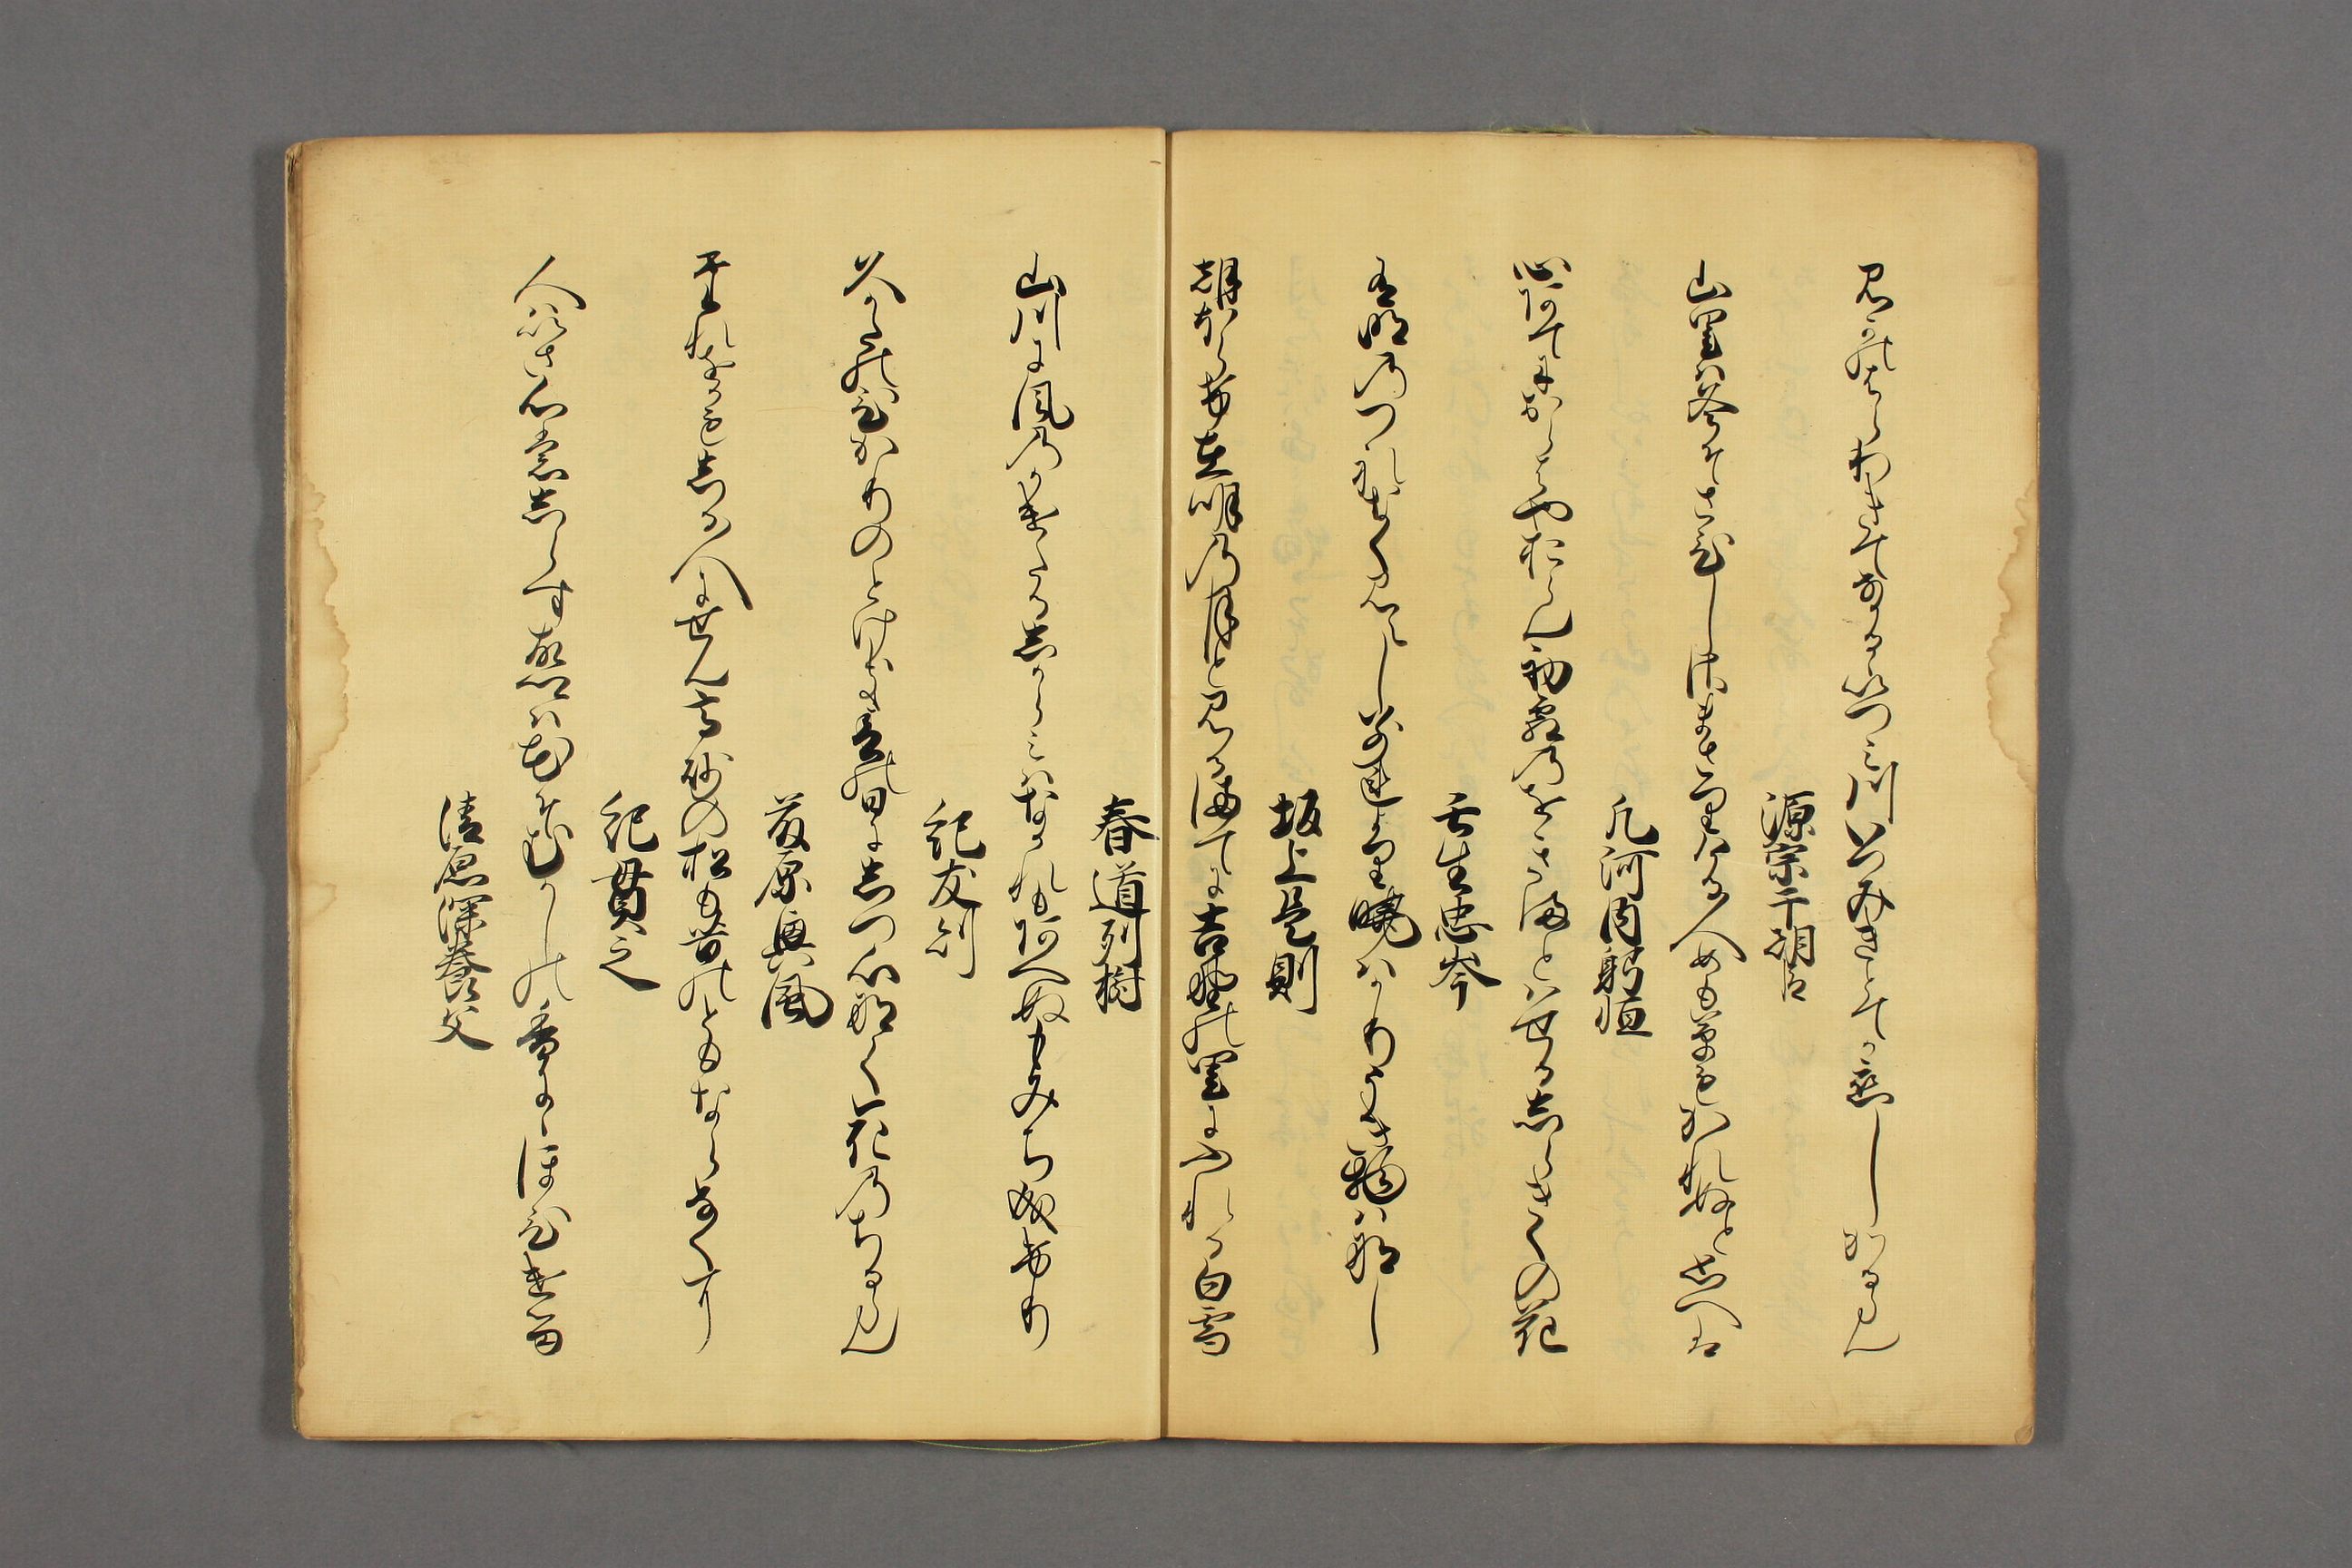 見かのはらわきてなかるゝいつみ川いつみきとてか恋しかるらん
源宗于朝臣
山里は冬そさひしさまさりける人めも草もかれぬと思へは
凡河内躬恒
心あてにおらはやおらん初霜のをきまとはせるしらきくの花
壬生忠岑
有明のつれなく見えし別より暁はかりうき物はなし
坂上是則
朝ほらけ在明の月と見るまてに吉野の里にふれる白雪
春道列樹
山川に風のかけたるしからみはなかれもあへぬもみち成けり
紀友則
久かたのひかりのとけき春の日にしつ心なく花のちるらん
藤原興風
たれをかもしる人にせん高砂の松も昔のともならなくに
紀貫之
人はいさ心もしらす故郷は花そむかしの香にゝほひける
清原深養父